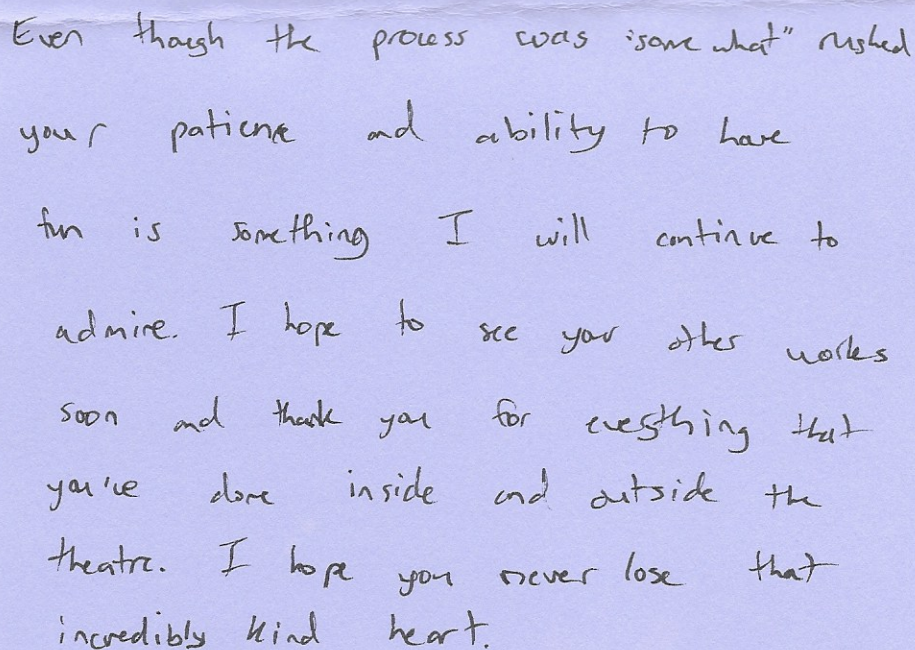 Even though the process was "somewhat" rushed
your patience and ability to have
fun is something I will continue to
admire. I hope to see your other works
soon and thank you for everything that
you've done inside and outside the
theatre. I hope you never lose that
incredibly kind heart.